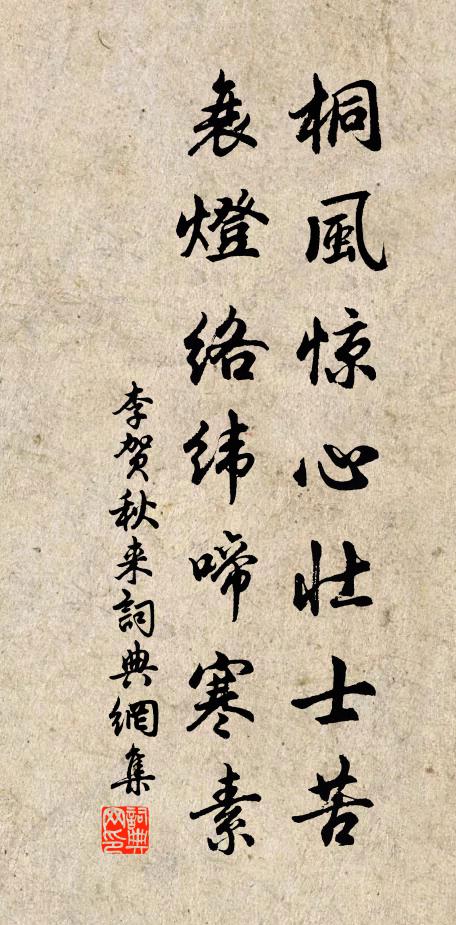 桐風惊心壮士苦
衰燈絡緯啼寒素
李贺秋来詞典網集
詞典网印